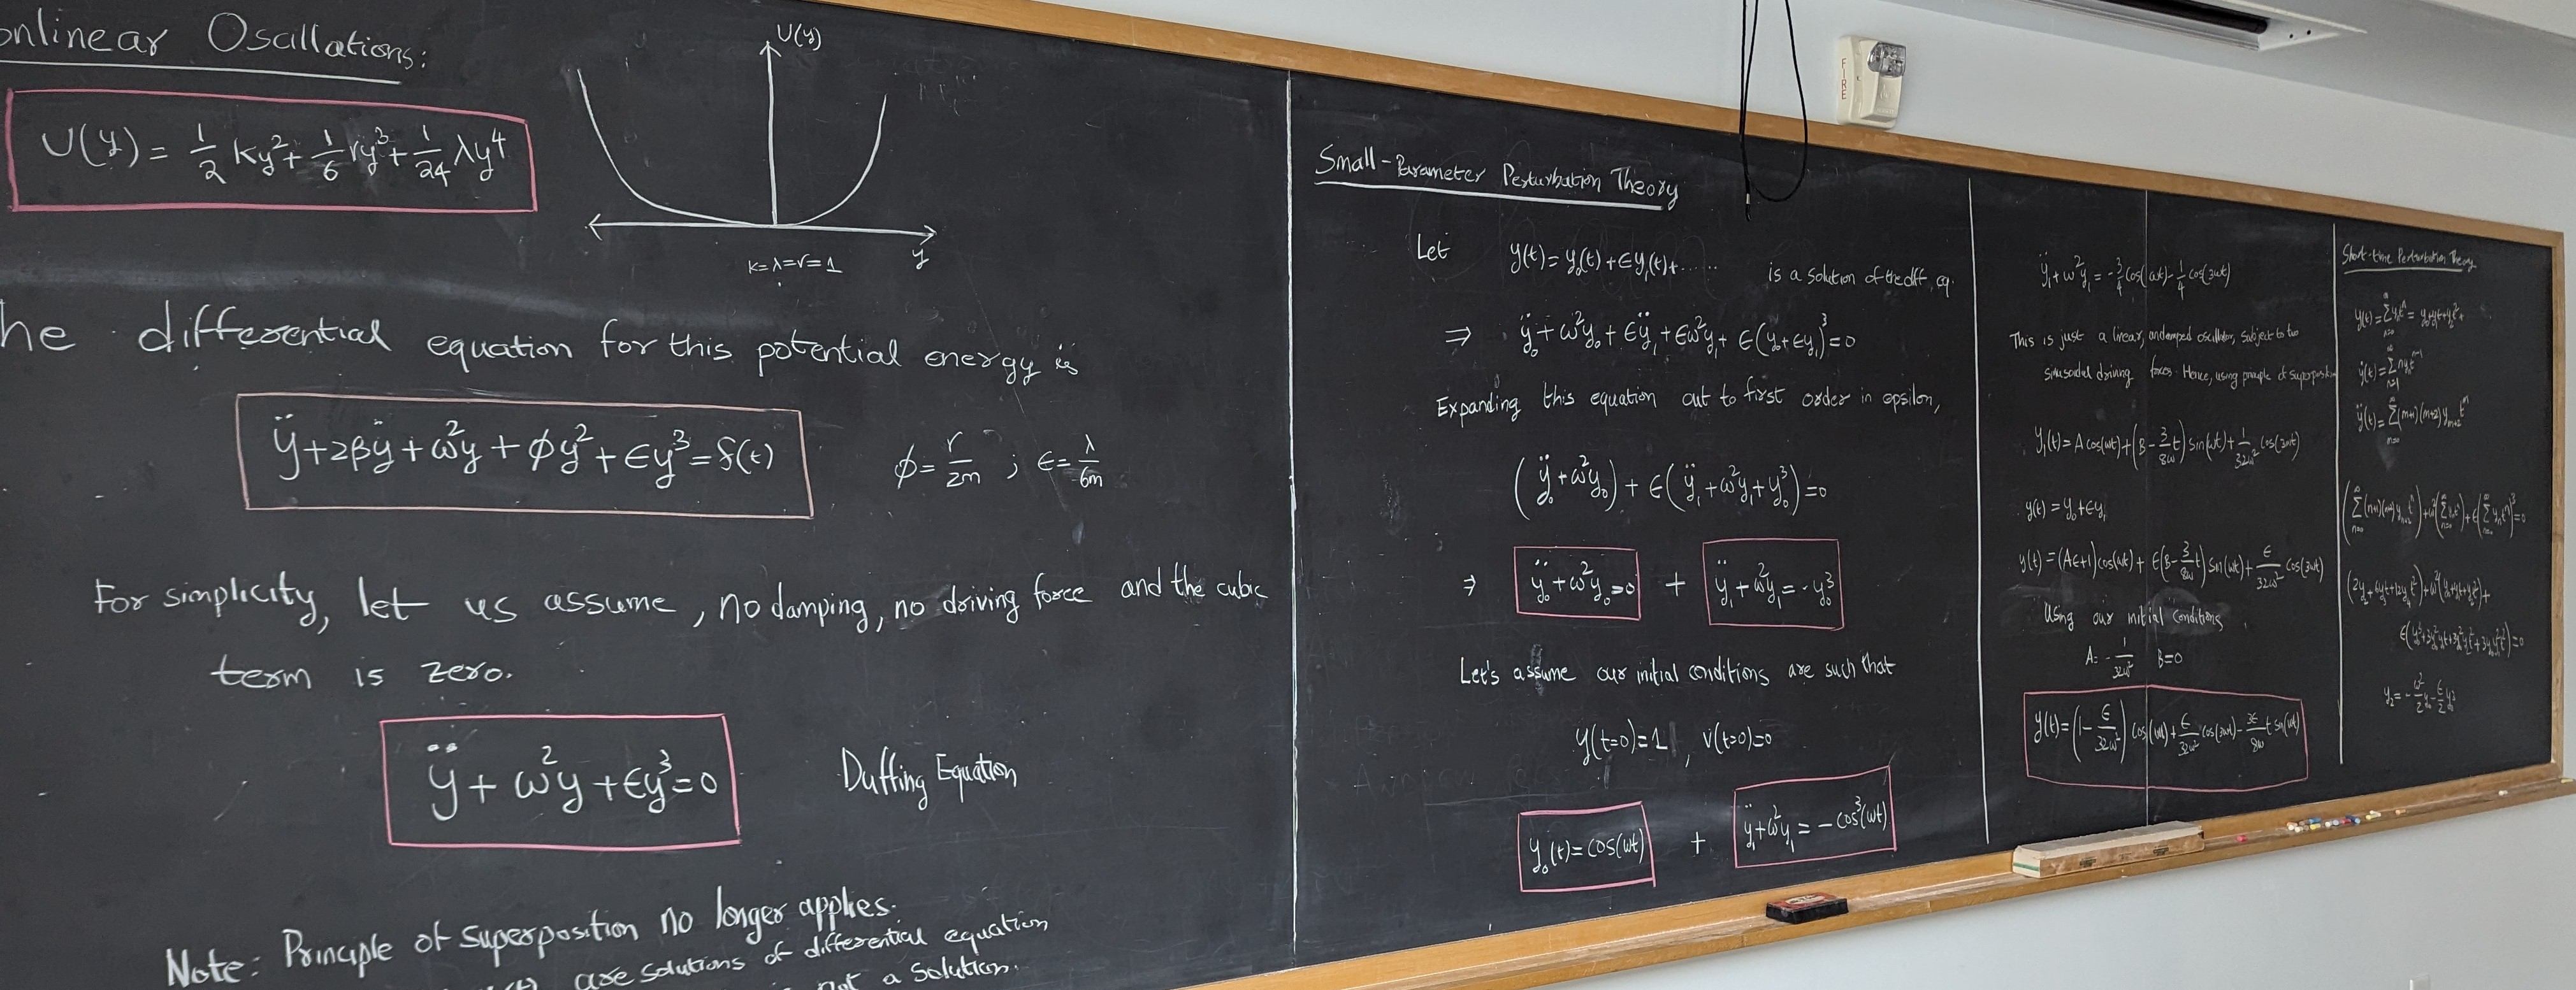 onlinear Oscillations:
U(y) = 1/2 ky² + 1/6 ry³ + 1/24 λy⁴
U(y)
y
k=λ=r=1
he differential equation for this potential energy is
ÿ+2βÿ+ω²y+ϕy²+ϵy³=f(t)
ϕ = r/2m ; ϵ = λ/6m
For simplicity, let us assume, no damping, no driving force and the cubic
term is zero.
ÿ + ω²y + ϵy³=0
Duffing Equation
Note: Principle of superposition no longer applies.
are solutions of differential equation
not a solution.
Small-Parameter Perturbation Theory
Let y(t) = y₀(t) + ϵy₁(t) + ..... is a solution of the diff. eq.
⇒ ÿ₀ + ω²y₀ + ϵÿ₁ + ϵω²y₁ + ϵ(y₀+ϵy₁)³=0
Expanding this equation out to first order in epsilon,
(ÿ₀+ω²y₀) + ϵ(ÿ₁+ω²y₁+y₀³)=0
⇒ ÿ₀+ω²y₀=0 + ÿ₁+ω²y₁=-y₀³
Let's assume our initial conditions are such that
y(t=0)=1, v(t=0)=0
y₀(t)=cos(ωt) + ÿ₁+ω²y₁ = -cos³(ωt)
ÿ₁+ω²y₁ = -3/4 cos(ωt) - 1/4 cos(3ωt)
This is just a linear, undamped oscillator, subject to two
sinusoidal driving forces. Hence, using principle of superposition
y₁(t)=A cos(ωt)+(B-3/8ω t) sin(ωt)+1/32ω² cos(3ωt)
y(t) = y₀+ϵy₁
y(t) = (Aϵ+1)cos(ωt) + ϵ(B-3/8ω t) sin(ωt) + ϵ/32ω² cos(3ωt)
Using our initial conditions
A= -1/32ω² B=0
y(t)=(1-ϵ/32ω²) cos(ωt)+ϵ/32ω² cos(3ωt)-3ϵ/8ω t sin(ωt)
Short-time Perturbation Theory
FIRE